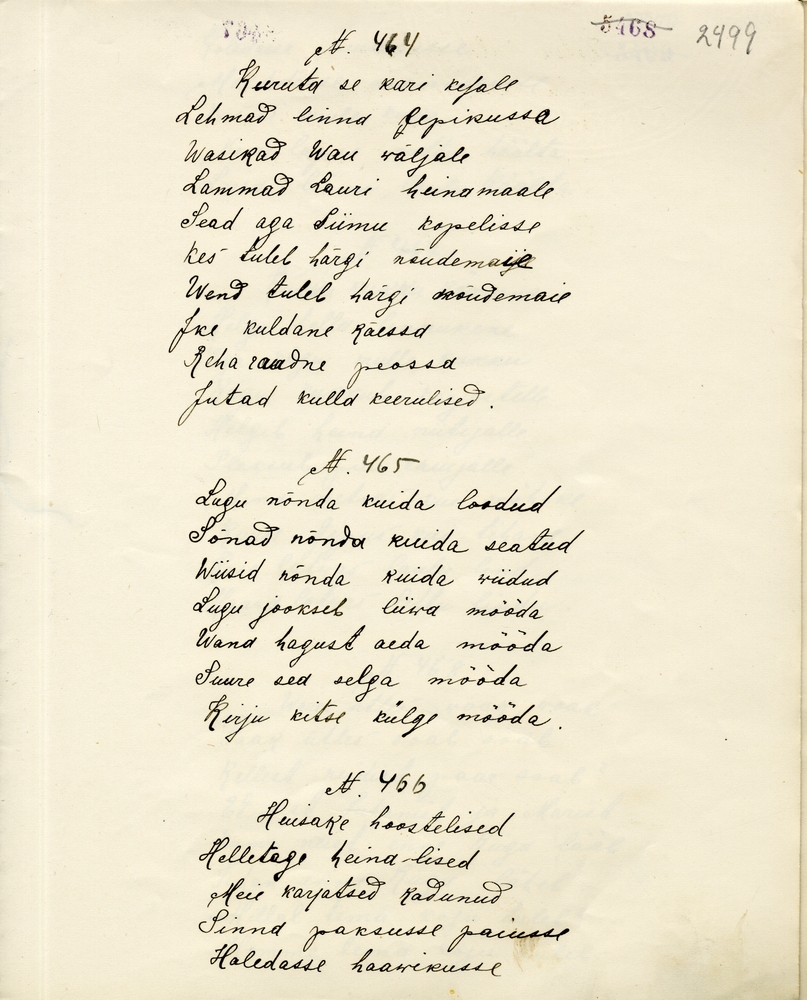 5468 2499
N. 464
Keeruta se kari kesale
Lehmad linna lepikussa
Wasikad Wau wäljale
Lammad Lauri heinamaale
Sead aga Siimu kopelisse
Kes tuleb härgi nõudemaie
Wend tuleb härgi nõudemaie
Ike kuldane käessa
Reha raudne peossa
Jutad kulla keerulised.
N. 465
Lugu nõnda kuida loodud
Sõnad nõnda kuida seatud
Wiisid nõnda kuida wiidud
Lugu jookseb liiwa mööda
Wana hagust aeda mööda
Suure sea selga mööda
Kirju kitse külge mööda.
N. 466
Huisake hoostelised
Helletage heina-lised
Meie karjatsed kadunud
Sinna paksusse paiusse
Haledasse haawikusse